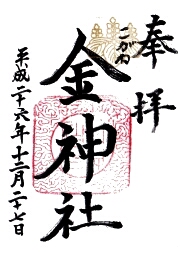 奉拝
こがね
金神社
平成二十六年十二月二十七日